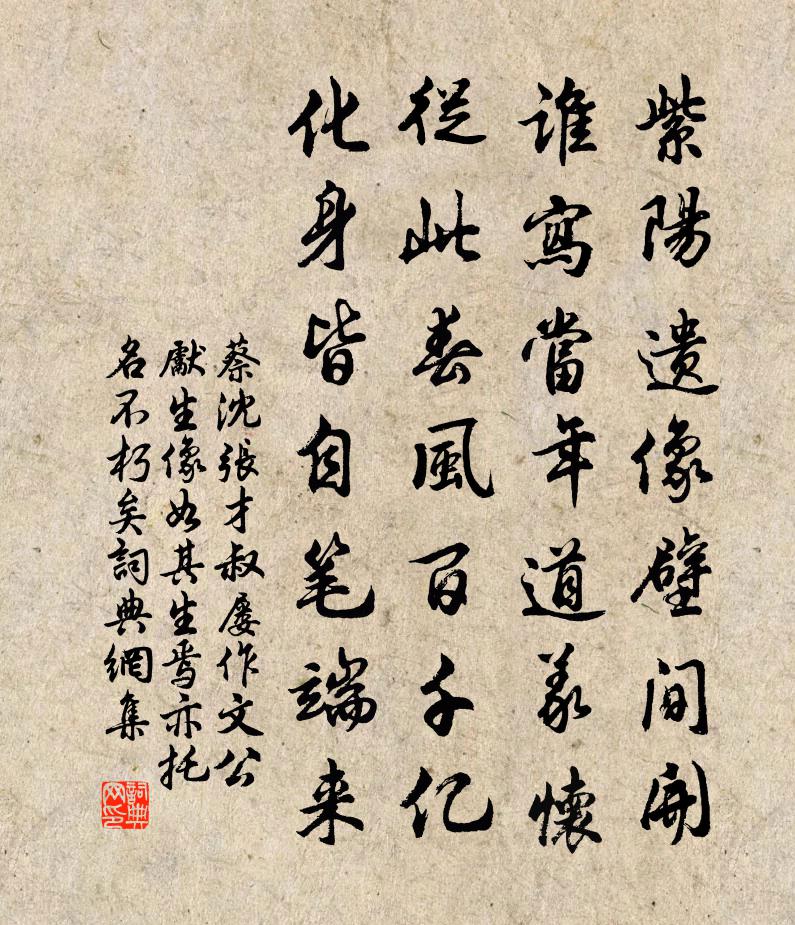 紫陽遺像壁間開
誰寫當年道義懷
從此春風百千亿
化身皆自笔端来
蔡沈張才叔屡作文公
獻生像如其生焉亦托
名不朽矣詞典網集
詞典网印